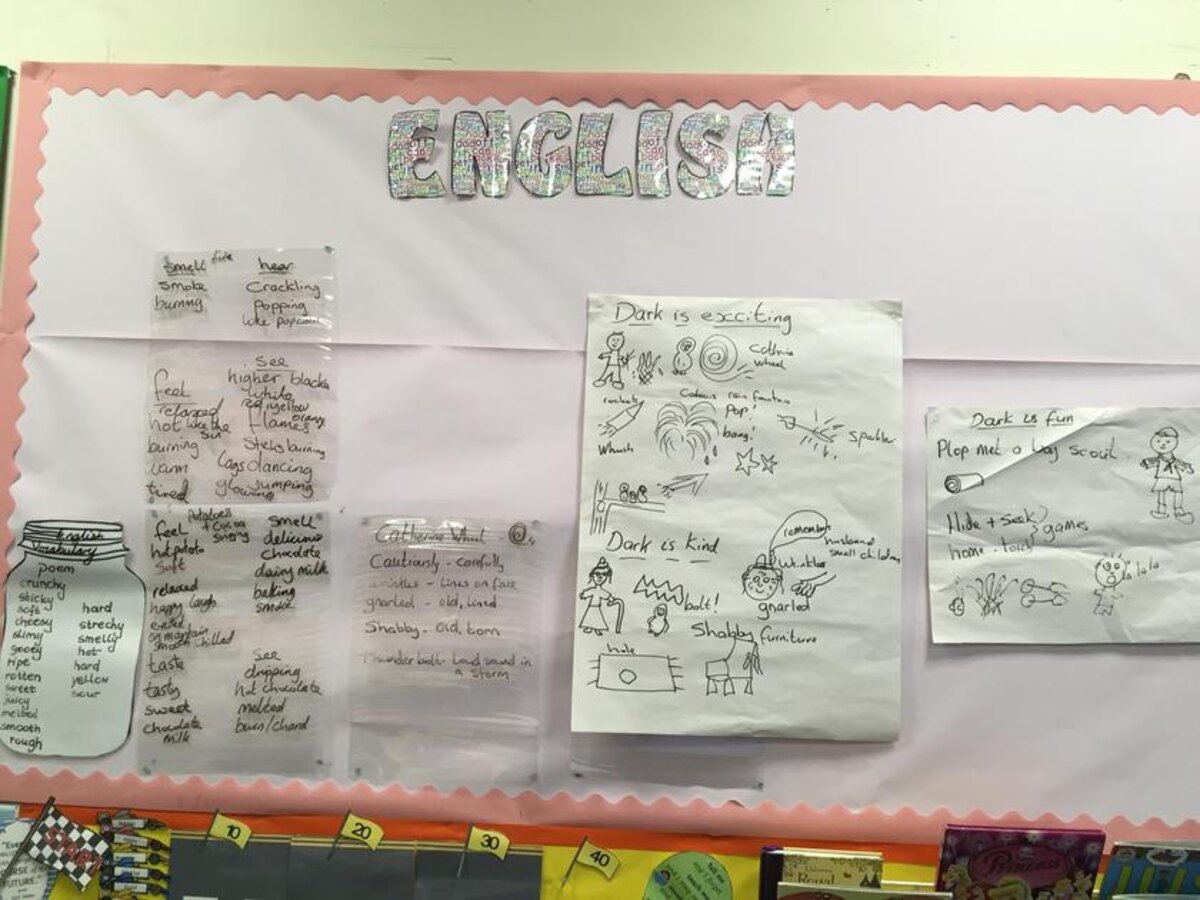 ENGLISH
smell fire hear
smoke Crackling
burning Popping
like popcorn
see
feel higher blacks
relaxed white
red yellow
hot like the flames orange
sun
burning Sticks burning
warm Logs dancing
tired glowing jumping
Potatoes + Cocoa
feel smell
hot potato delicious
soft chocolate
dairy milk
relaxed baking
happy laugh smoke
excited
smooth chilled
taste see
dripping
tasty hot chocolate
sweet melted
chocolate burn/chard
milk
English
Vocabulary
poem
crunchy
sticky
soft hard
cheesy strechy
slimy smelly
gooey hot
ripe hard
rotten yellow
sweet sour
juicy
melted
smooth
rough
Catherine Wheel
Cautiously - carefully
wrinkles - Lines on face
gnarled - old, lined
Shabby - Old, torn
Thunder bolt - Loud sound in
a storm
Dark is exciting
Cathrine
wheel
rockets
Colours rain fountain
Pop!
bang!
Whush
Dark is Kind
remember
husband
small children
wrinkles
bolt!
gnarled
Shabby furniture
hole
Dark is fun
Plop met a boy scout
Hide + Seek games
la lala
10
20
30
40
Princess